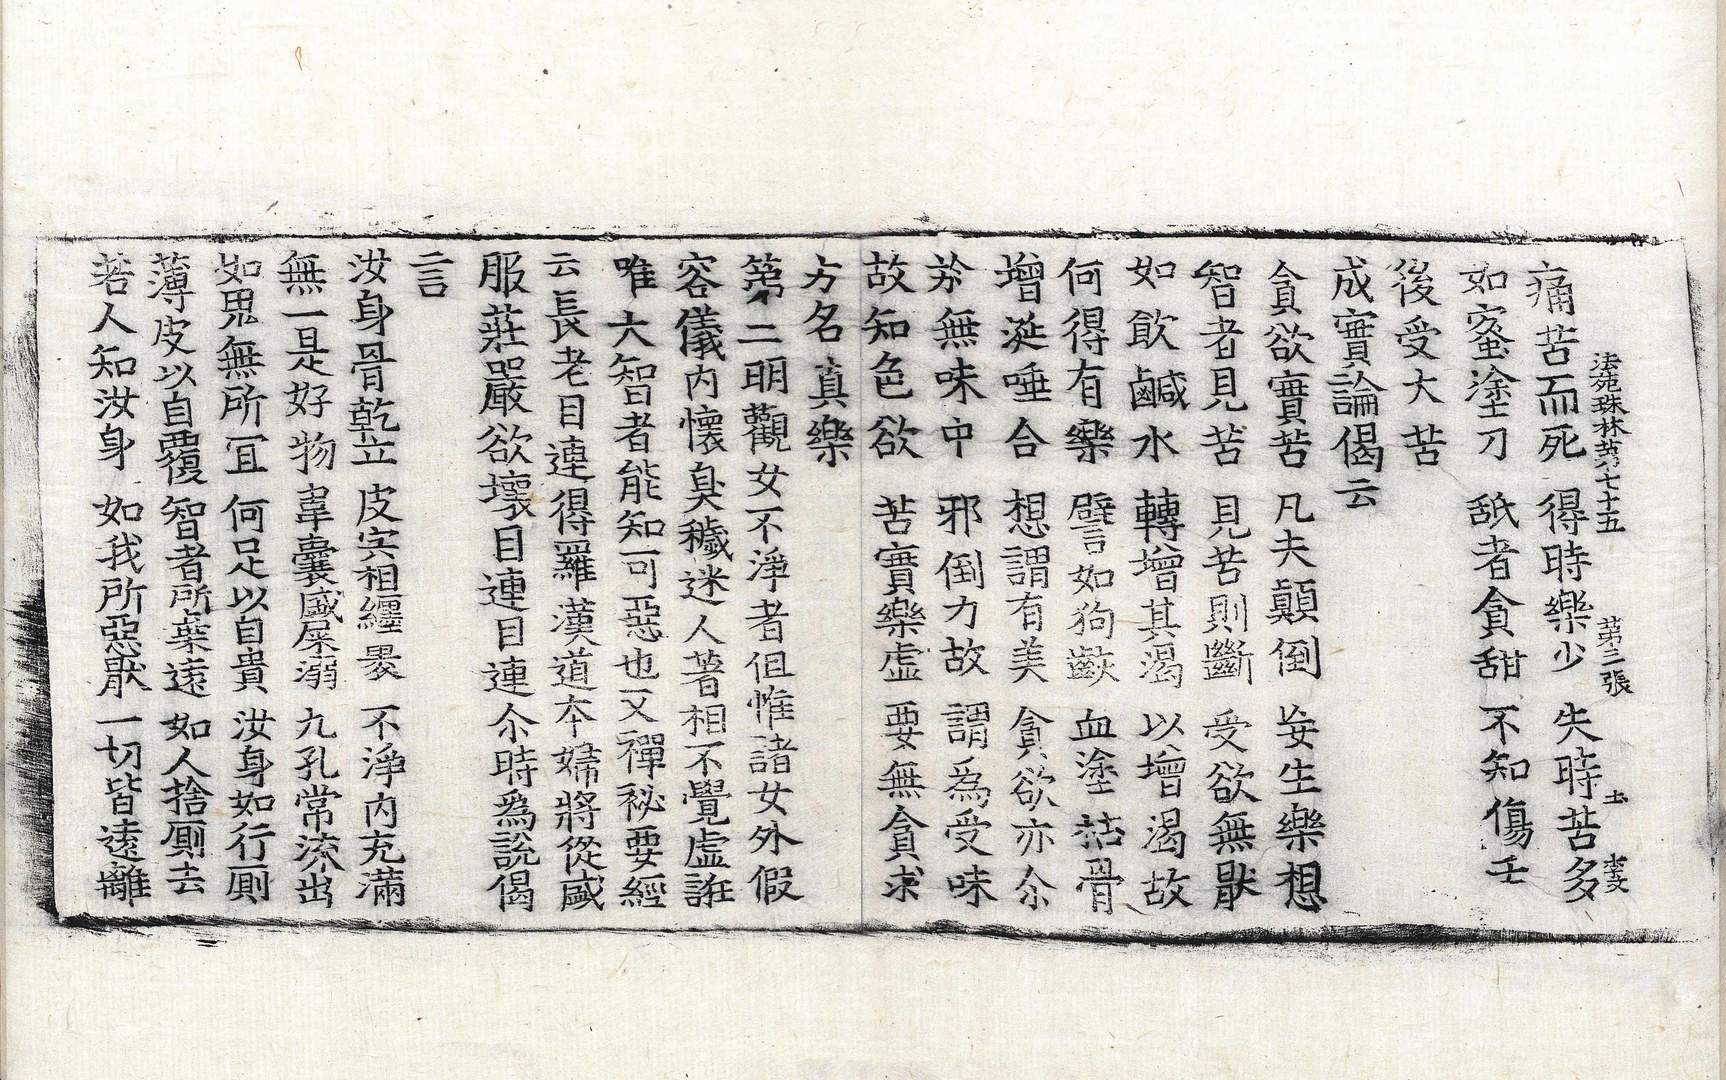 法苑珠林苐七十五　苐二張　𡈽　李文
痛苦而死　得時樂少　失時苦多
如蜜塗刀　舐者貪甜　不知傷舌
後受大苦
成實論偈云
貪欲實苦　凡夫顛倒　妄生樂想
智者見苦　見苦則斷　受欲無猒
如飲鹹水　轉增其渴　以增渴故
何得有樂　譬如狗齩　血塗枯骨
增涎唾合　想謂有美　貪欲亦尒
於無味中　邪倒力故　謂爲受味
故知色欲　苦實樂虛　要無貪求
方名真樂
第二明觀女不淨者但惟諸女外假
容儀內懷臭穢迷人著相不覺虛誑
唯大智者能知可惡也又禪祕要經
云長老目連得羅漢道本婦將從盛
服莊嚴欲壞目連目連尒時爲說偈
言
汝身骨乾立　皮宍相纏褁　不淨內充滿
無一是好物　韋囊盛屎溺　九孔常流出
如鬼無所冝　何足以自貴　汝身如行厠
薄皮以自覆　智者所棄遠　如人捨厠去
若人知汝身　如我所惡猒　一切皆遠離